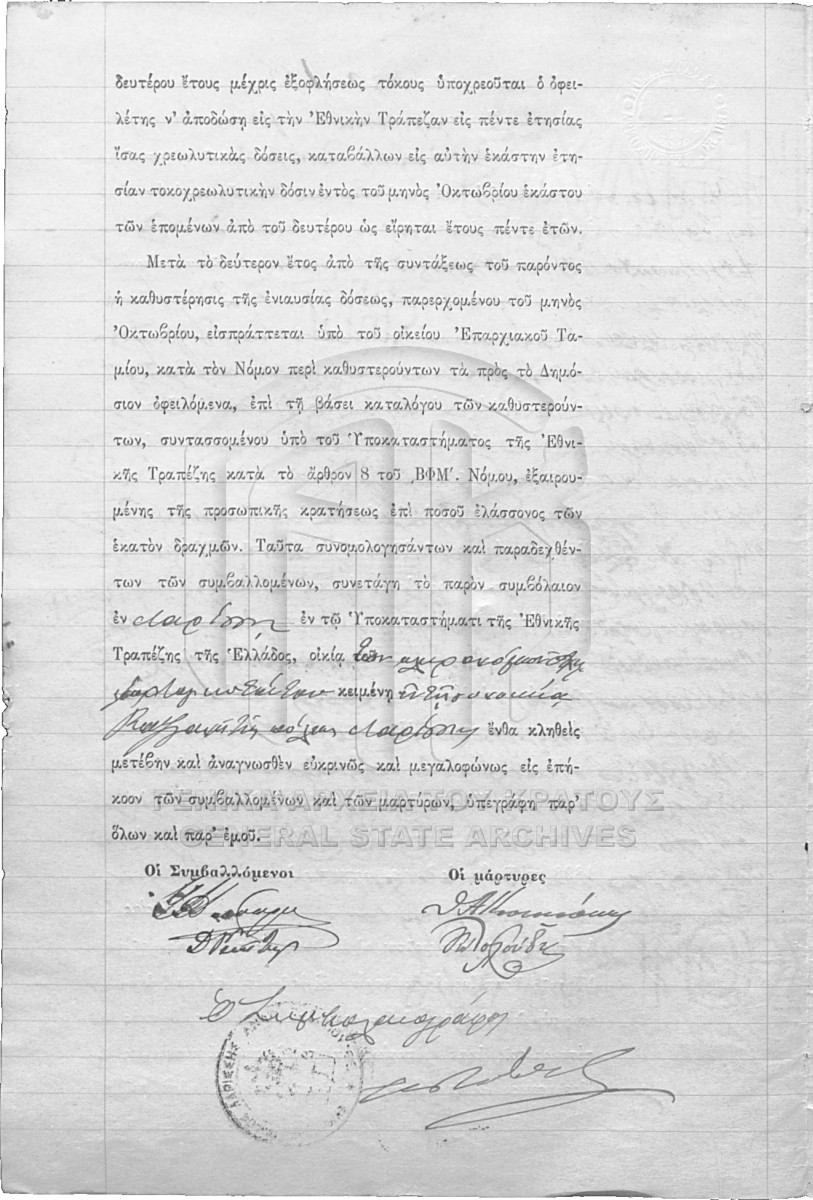 δευτέρου ἔτους μέχρις ἐξοφλήσεως τόκους ὑποχρεοῦται ὁ ὀφει-
λέτης ν’ ἀποδώσῃ εἰς τὴν Ἐθνικὴν Τράπεζαν εἰς πέντε ἐτησίας
ἴσας χρεωλυτικὰς δόσεις, καταβάλλων εἰς αὐτὴν ἑκάστην ἐτη-
σίαν τοκοχρεωλυτικὴν δόσιν ἐντὸς τοῦ μηνὸς Ὀκτωβρίου ἑκάστου
τῶν ἑπομένων ἀπὸ τοῦ δευτέρου ὡς εἴρηται ἔτους πέντε ἐτῶν.
Μετὰ τὸ δεύτερον ἔτος ἀπὸ τῆς συντάξεως τοῦ παρόντος
ἡ καθυστέρησις τῆς ἐνιαυσίας δόσεως, παρερχομένου τοῦ μηνὸς
Ὀκτωβρίου, εἰσπράττεται ὑπὸ τοῦ οἰκείου Ἐπαρχιακοῦ Τα-
μίου, κατὰ τὸν Νόμον περὶ καθυστερούντων τὰ πρὸς τὸ Δημό-
σιον ὀφειλόμενα, ἐπὶ τῇ βάσει καταλόγου τῶν καθυστερούν-
των, συντασσομένου ὑπὸ τοῦ Ὑποκαταστήματος τῆς Ἐθνι-
κῆς Τραπέζης κατὰ τὸ ἄρθρον 8 τοῦ ͵ΒΦΜ΄. Νόμου, ἐξαιρου-
μένης τῆς προσωπικῆς κρατήσεως ἐπὶ ποσοῦ ἐλάσσονος τῶν
ἑκατὸν δραχμῶν. Ταῦτα συνομολογησάντων καὶ παραδεχθέν-
των τῶν συμβαλλομένων, συνετάγη τὸ παρὸν συμβόλαιον
ἐν Λαρίσῃ ἐν τῷ Ὑποκαταστήματι τῆς Ἐθνικῆς
Τραπέζης τῆς Ἑλλάδος, οἰκίᾳ τῶν κληρονόμων
κειμένῃ ἐν τῇ συνοικίᾳ
πόλεως Λαρίσης ἔνθα κληθεὶς
μετέβην καὶ ἀναγνωσθὲν εὐκρινῶς καὶ μεγαλοφώνως εἰς ἐπή-
κοον τῶν συμβαλλομένων καὶ τῶν μαρτύρων, ὑπεγράφη παρ’
ὅλων καὶ παρ’ ἐμοῦ.
ΓΕΝΙΚΑ ΑΡΧΕΙΑ ΤΟΥ ΚΡΑΤΟΥΣ
GENERAL STATE ARCHIVES
Οἱ Συμβαλλόμενοι Οἱ μάρτυρες
Ὁ Συμβολαιογράφος